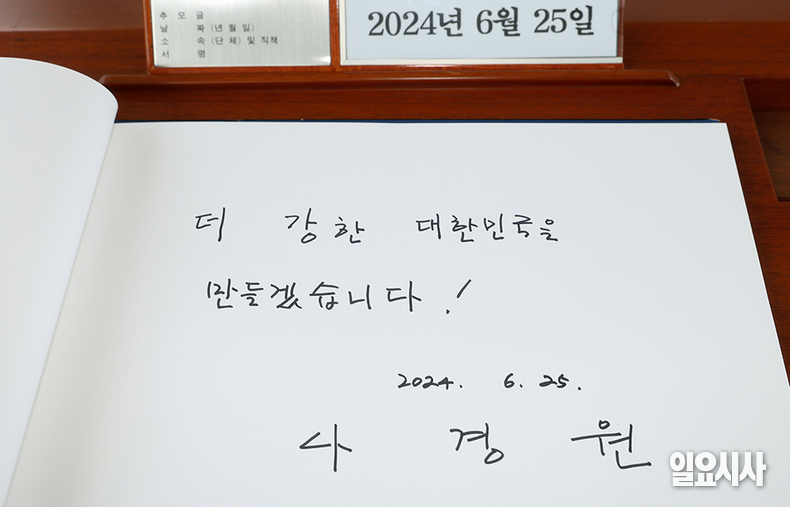 추 모 글
날 짜 (년 월 일)
소 속 (단 체) 및 직책
서 명
2024년 6월 25일
더 강한 대한민국을
만들겠습니다!
2024. 6. 25.
나 경 원
일요시사